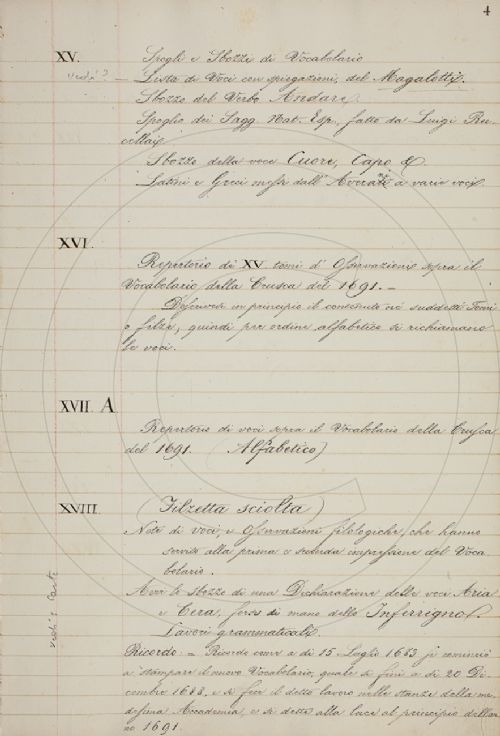 4
XV. Spogli e Sbozzi di Vocabolario
vedi? — Lista di Voci con spiegazioni, del Magalotti.
Sbozzo del Verbo Andare.
Spoglio dei Sagg. Nat. Esp. fatto da Luigi Ru-
cellai
Sbozzo della voce Cuore, Capo &
Latini e Greci messi dall' a varie voci.
XVI.
Repertorio di XV tomi d' Osservazioni sopra il
Vocabolario della Crusca del 1691. —
Descrivesi in principio il contenuto ne' suddetti Tomi
o filze, quindi per ordine alfabetico si richiamano
le voci.
XVII. A
Repertorio di voci sopra il Vocabolario della Crusca
del 1691. (Alfabetico)
XVIII. (Filzetta sciolta)
Note di voci, e Osservazioni filologiche, che hanno
servito alla prima e seconda impressione del Voca
bolario.
Avvi lo sbozzo di una Dichiarazione delle voci Aria
e Cera, forse di mano dello Inferrigno.
Lavori grammaticali.
Ricordo = Ricordo come a dì 15 Luglio 1682 si cominciò
a stampare il nuovo Vocabolario, quale si finì a dì 20 Di-
cembre 1688, e si fece il detto lavoro nelle stanze della me-
desima Accademia, e si dette alla luce al principio dell'an
no 1691.